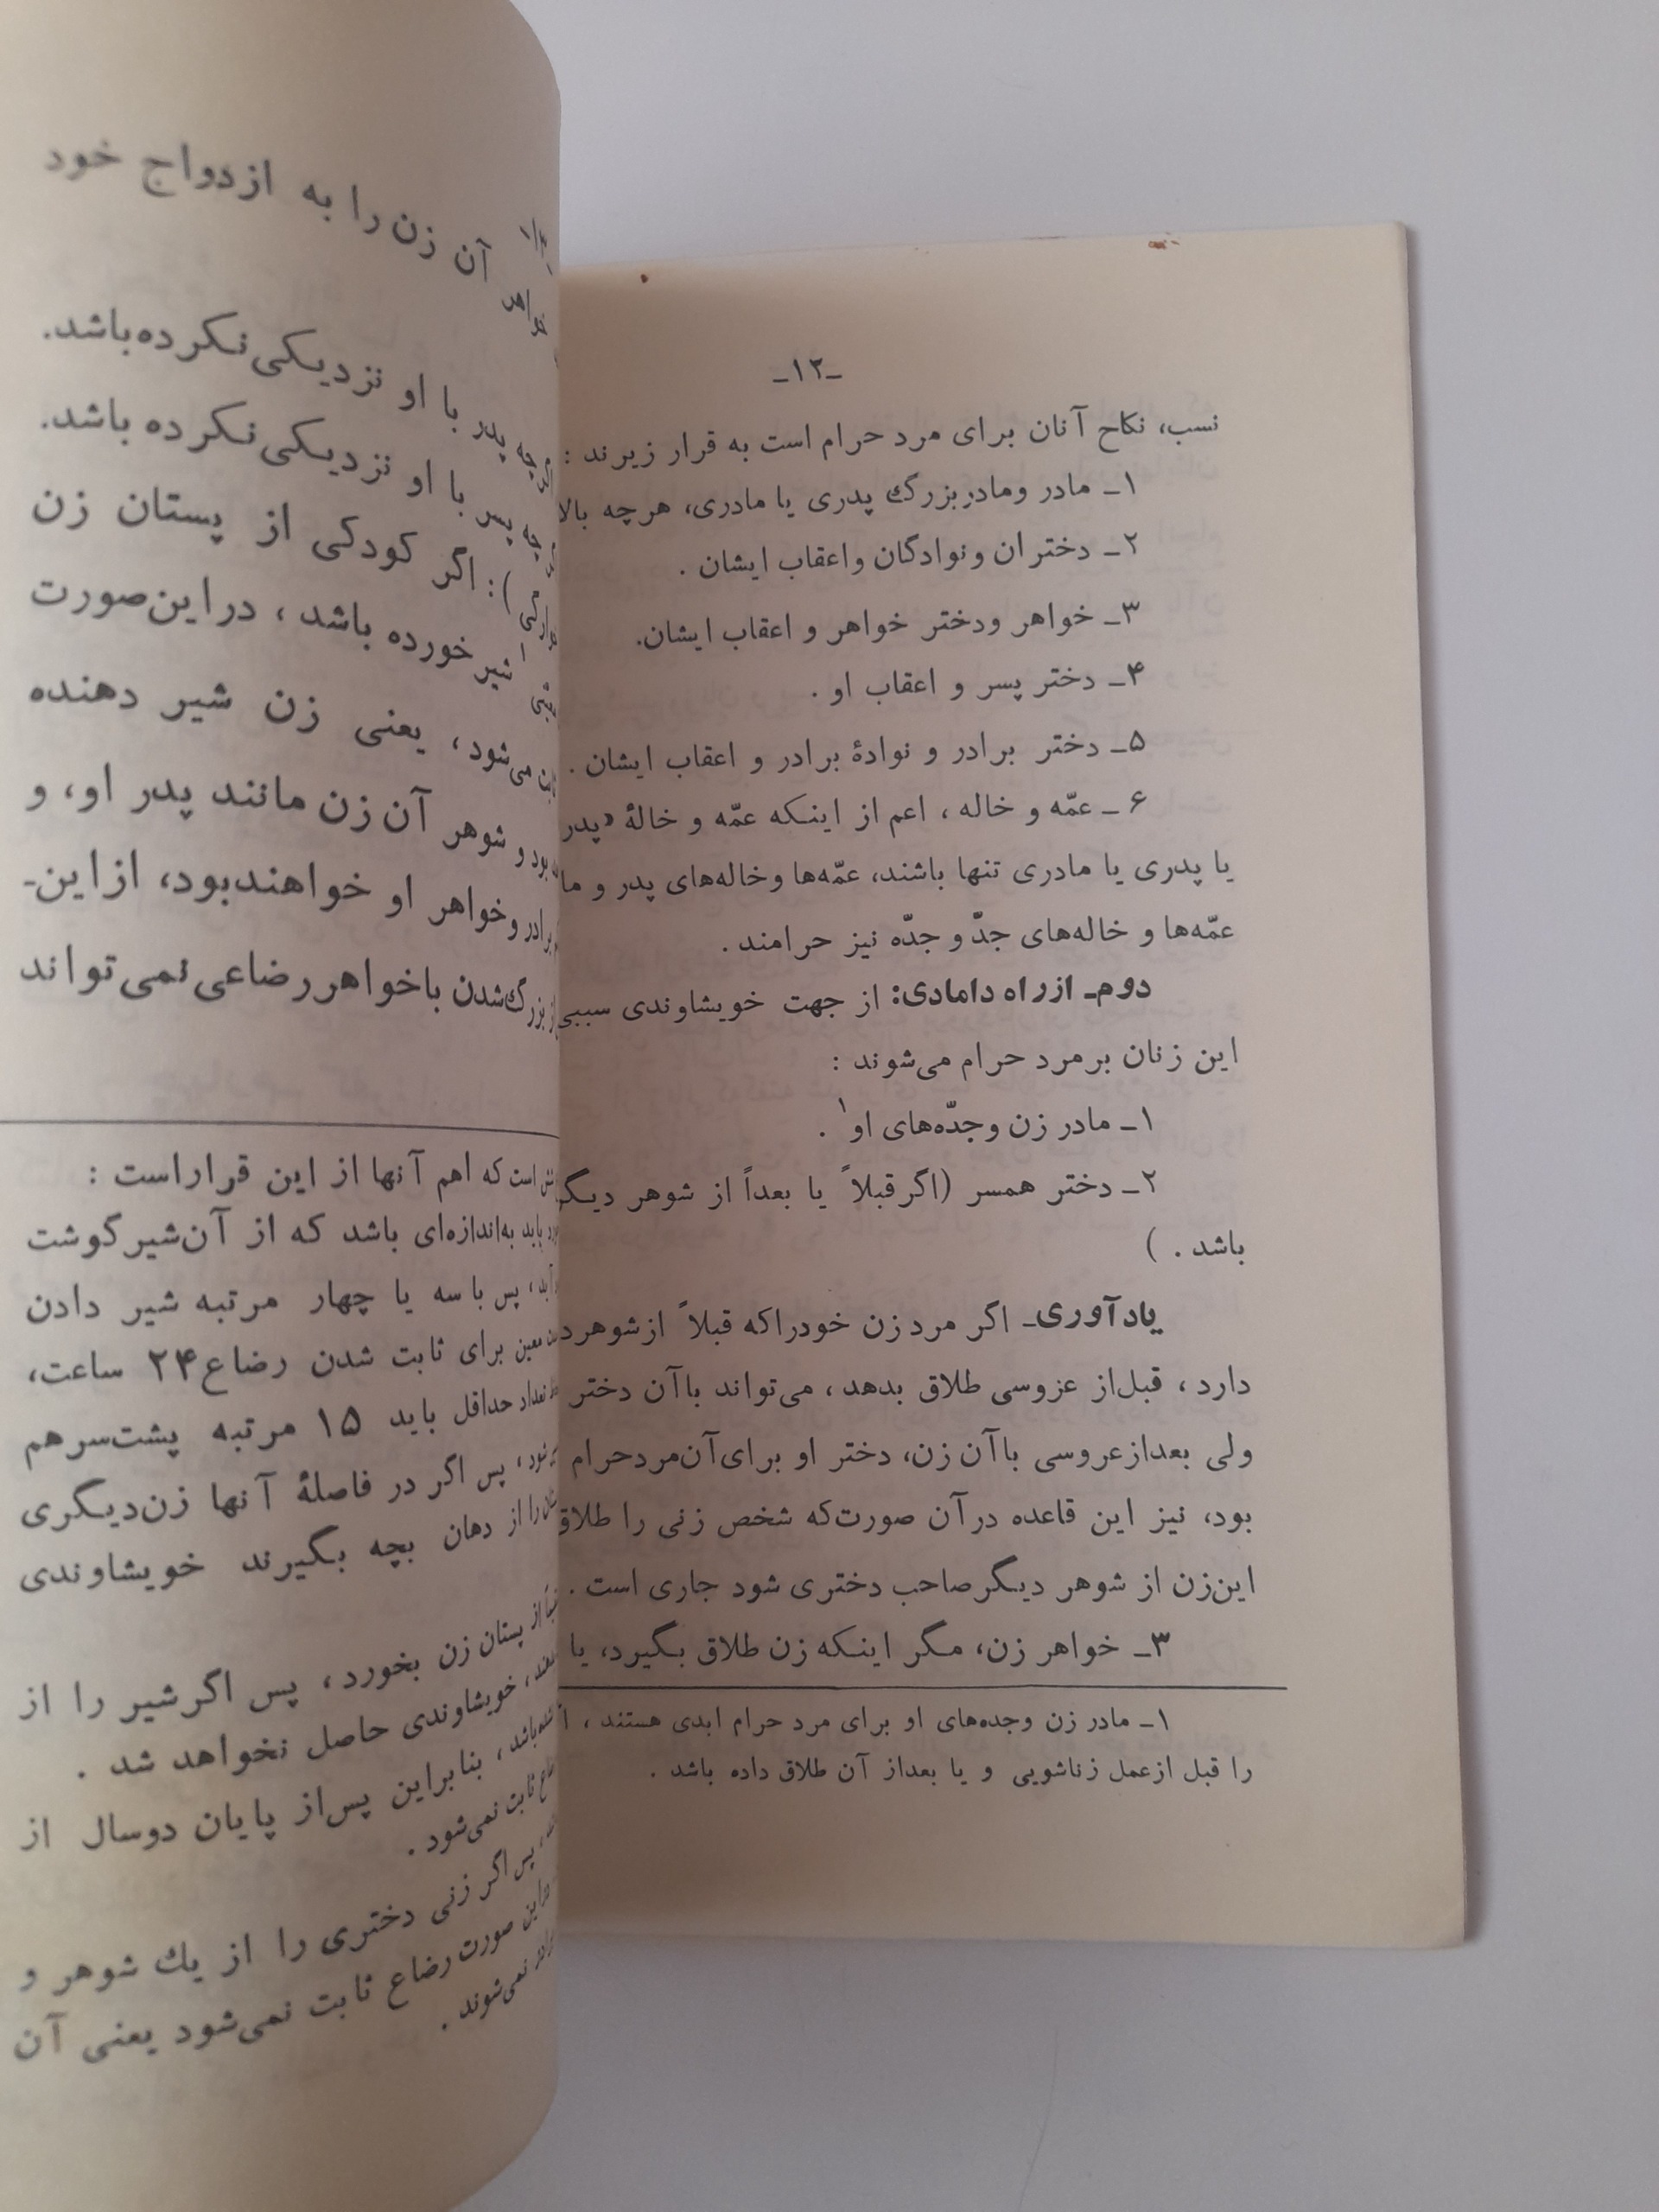 ـ۱۳ـ
نسب، نکاح آنان برای مرد حرام است به قرار زیرند :
۱ـ مادر ومادربزرگ پدری یا مادری، هرچه بالا
۲ـ دختران ونوادگان واعقاب ایشان .
۳ـ خواهر ودختر خواهر و اعقاب ایشان.
۴ـ دختر پسر و اعقاب او .
۵ـ دختر برادر و نوادهٔ برادر و اعقاب ایشان .
۶ـ عمّه و خاله ، اعم از اینکه عمّه و خالهٔ «پدر
یا پدری یا مادری تنها باشند، عمّه‌ها وخاله‌های پدر و ما
عمّه‌ها و خاله‌های جدّ و جدّه نیز حرامند .
دوم‌ـ ازراه دامادی: از جهت خویشاوندی سببی
این زنان برمرد حرام می‌شوند :
۱ـ مادر زن وجدّه‌های او۱ .
۲ـ دختر همسر (اگرقبلاً یا بعداً از شوهر دیگر
باشد . )
یادآوری‌ـ اگر مرد زن خودراکه قبلاً ازشوهرد
دارد ، قبل‌از عزوسی طلاق بدهد ، می‌تواند باآن دختر
ولی بعدازعروسی باآن زن، دختر او برای‌آن‌مردحرام
بود، نیز این قاعده درآن صورت‌که شخص زنی را طلاق
این‌زن از شوهر دیگرصاحب دختری شود جاری است .
۳ـ خواهر زن، مگر اینکه زن طلاق بگیرد، یا
۱ـ مادر زن وجده‌های او برای مرد حرام ابدی هستند ،
را قبل ازعمل زناشویی و یا بعداز آن طلاق داده باشد .
خواهر آن زن را به ازدواج خود
اگرچه پدر با او نزدیکی‌نکرده‌باشد.
چه پسر با او نزدیکی‌نکرده باشد.
): اگر کودکی از پستان زن
شیرخورده باشد ، دراین‌صورت
می‌شود ، یعنی زن شیر دهنده
بود و شوهر آن زن مانند پدر او، و
برادر وخواهر او خواهندبود، ازاین‌ـ
بزرگ‌شدن باخواهررضاعی نمی‌تواند
است که اهم آنها از این قراراست :
باید به‌اندازه‌ای باشد که از آن‌شیرگوشت
پس با سه یا چهار مرتبه شیر دادن
معین برای ثابت شدن رضاع۲۴ ساعت،
تعداد حداقل باید ۱۵ مرتبه پشت‌سرهم
پس اگر در فاصلهٔ آنها زن‌دیگری
را از دهان بچه بگیرند خویشاوندی
از پستان زن بخورد ، پس اگرشیر را از
خویشاوندی حاصل نخواهد شد .
باشد ، بنابراین پس‌از پایان دوسال از
ثابت نمی‌شود .
پس اگر زنی دختری را از یك شوهر و
دراین صورت رضاع ثابت نمی‌شود یعنی آن
نمی‌شوند .